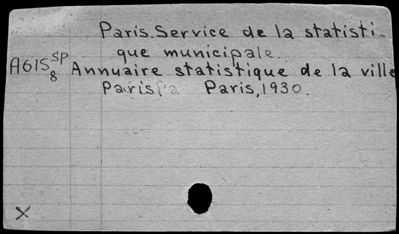 Paris. Service de la statisti-
que municipale.
A615 SP
8
Annuaire statistique de la ville
Paris Pa Paris, 1930.
X